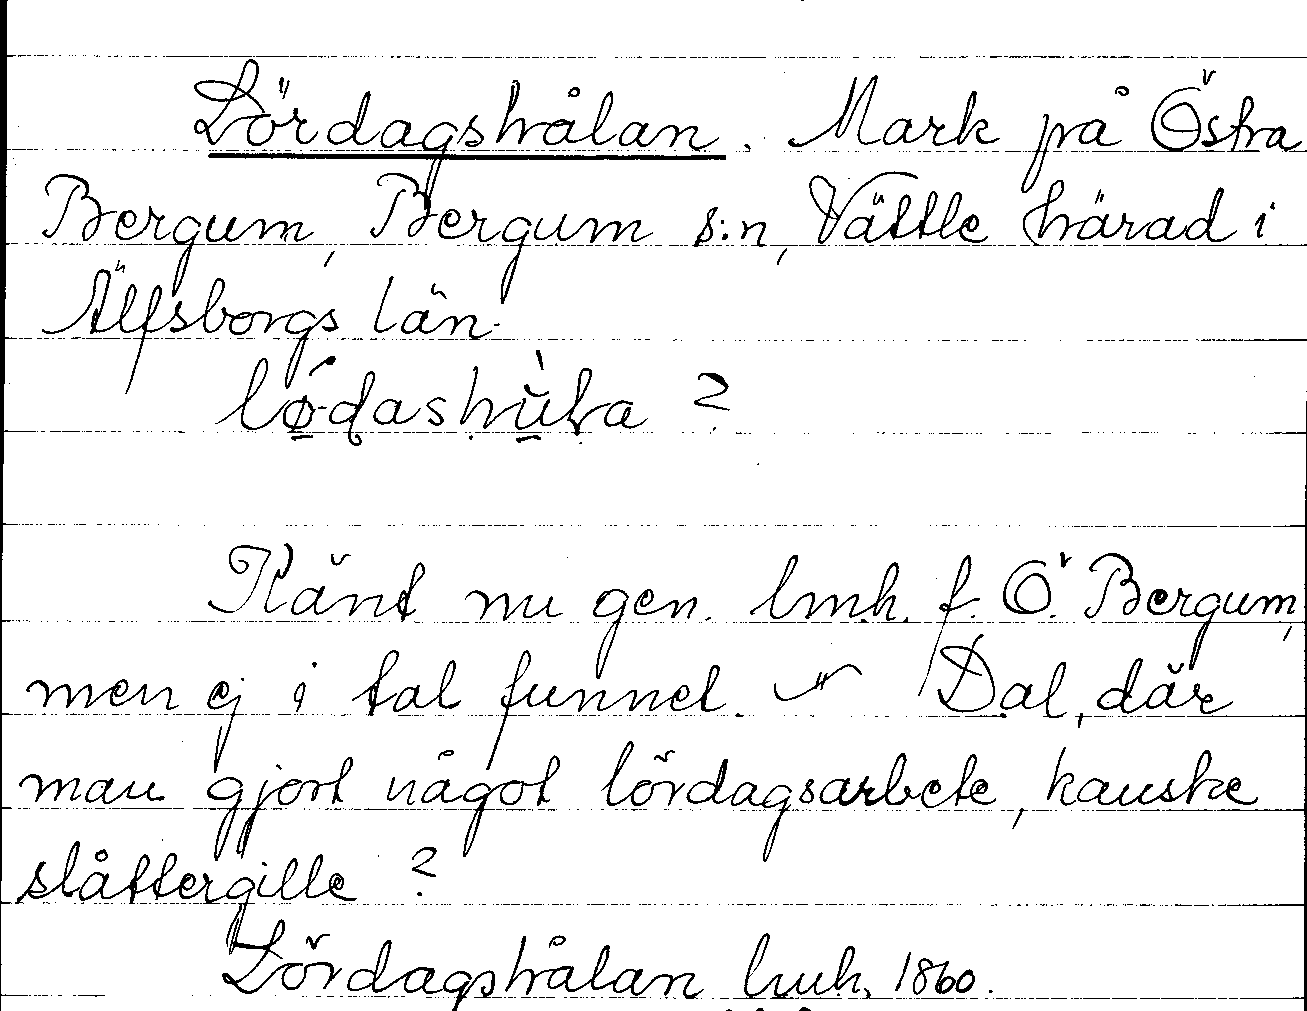 Lördagshålan. Mark på Östra
Bergum, Bergum s:n, Vättle härad i
Älfsborgs län.
?
Känt nu gen. lmh. f. Ö. Bergum,
men ej i tal funnet. Dal, där
man gjort något lördagsarbete, kanske
slåttergille ?
Lördagshålan lmh. 1860.